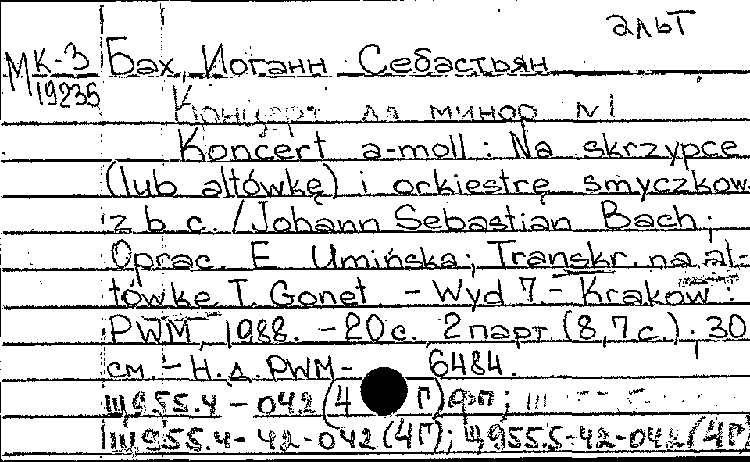 альт
МК-3 Бах, Иоганн Себастьян
19235
Концерт ля минор N1
Koncert a-moll : Na skrzypce
(lub altówkę) i orkiestrę smyczkow
z b.c. / Johann Sebastian Bach;
Oprac. E Umińska; Transkr. na al-
tówkę T. Gonet - Wyd 7. - Krakow :
PWM, 1988. - 20 с. 2 парт (8,7 с.). 30
см. - Н.д. PWM - 6484.
Щ955.4 - 042 (4 Г) фп;
Щ955.4-42-042 (4Г); Щ955.5-42-042 (4Г)